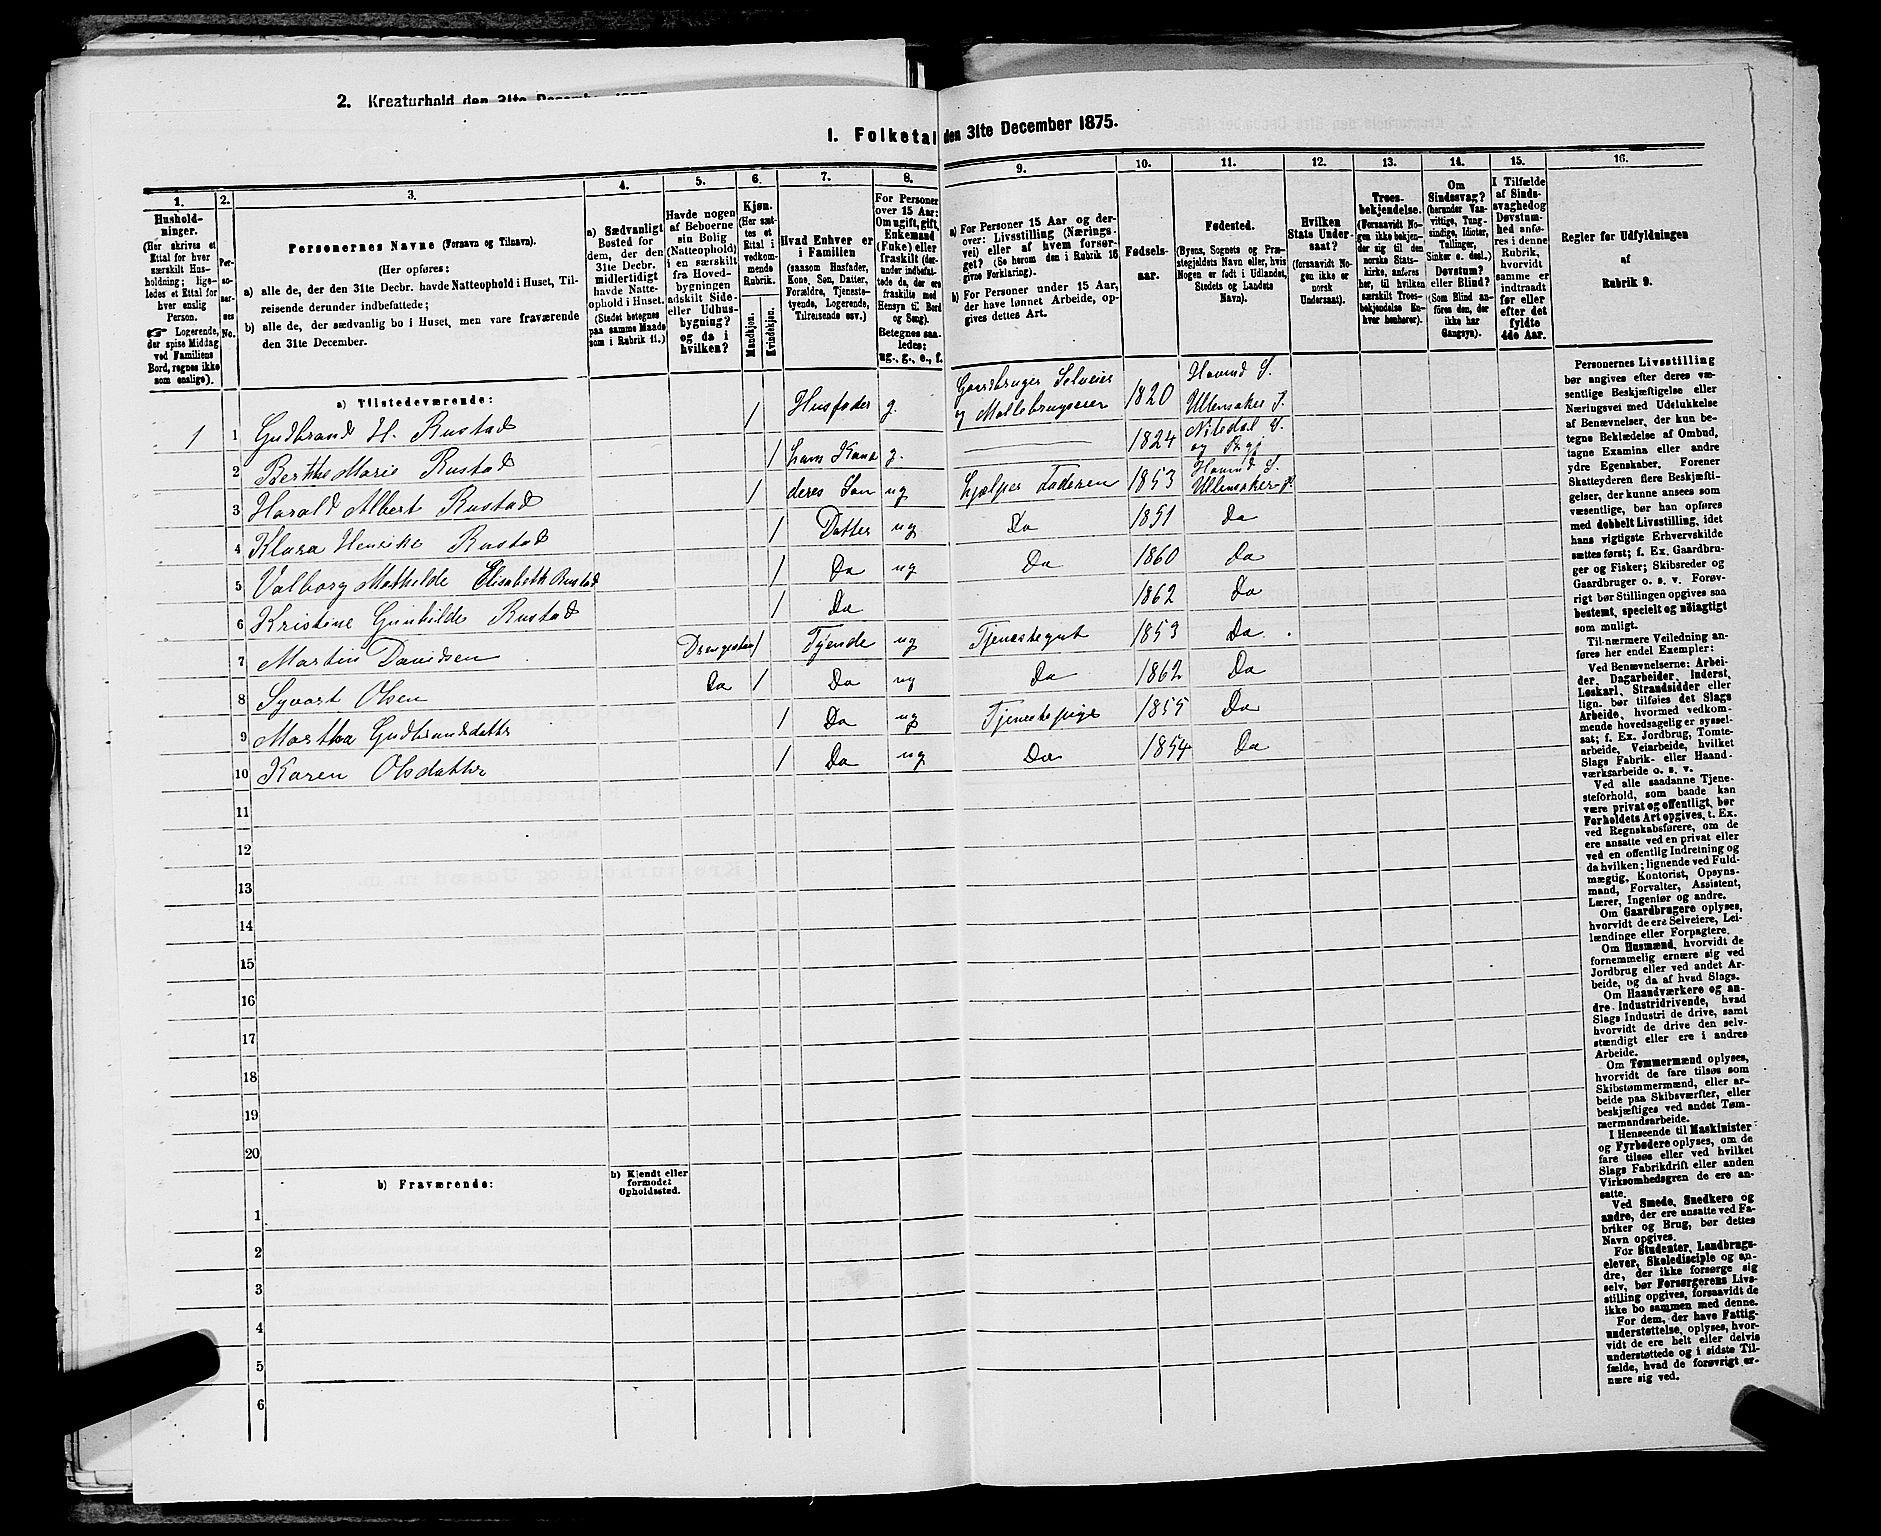 2. Kreaturhold den 31te December 1875
1. Folketal den 31te December 1875.
1.
2.
3.
4.
5.
6.
7.
8.
9.
10.
11.
12.
13.
14.
15.
16.
Hushold-
ninger.
(Her skrives et
Ettal for hver
særskilt Hus-
holdning; lige-
ledes et Ettal for
hver enslig
Person.
☞ Logerende,
der spise Middag
ved Familiens
Bord, regnes ikke
som enslige).
Per-
so-
ner-
nes
No.
Personernes Navne (Fornavn og Tilnavn).
(Her opføres:
a) alle de, der den 31te Decbr. havde Natteophold i Huset, Til-
reisende derunder indbefattede;
b) alle de, der sædvanlig bo i Huset, men vare fraværende
den 31te December.
a) Sædvanligt
Bosted for
dem, der den
31te Decbr.
midlertidigt
havde Natte-
ophold i Huset.
(Stedet betegnes
paa samme Maade
som i Rubrik 11.)
Havde nogen
af Beboerne
sin Bolig
(Natteophold)
i en særskilt
fra Hoved-
bygningen
adskilt Side-
eller Udhus-
bygning?
og da i
hvilken?
Kjøn.
(Her sæt-
tes et
Ettal i
vedkom-
mende
Rubrik.
Mandkjøn.
Kvindekjøn.
Hvad Enhver er
i Familien
(saasom Husfader,
Kone, Søn, Datter,
Forældre, Tjeneste-
tyende, Logerende,
Tilreisende osv.)
For Personer
over 15 Aar:
Om ugift, gift,
Enkemand
(Enke) eller
fraskilt (der-
under indbefat-
tede de, der ere
fraskilte med
Hensyn til Bord
og Seng).
Betegnes saa-
ledes:
ug., g., e., f.
a) For Personer 15 Aar og der-
over: Livsstilling (Nærings-
vei) eller af hvem forsør-
get? (Se herom den i Rubrik 16
givne Forklaring).
b) For Personer under 15 Aar,
der have lønnet Arbeide, op-
gives dettes Art.
Fødsels-
aar.
Fødested.
(Byens, Sognets og Præ-
stegjeldets Navn, eller, hvis
Nogen er født i Udlandet,
Stedets og Landets
Navn).
Hvilken
Stats Under-
saat?
(forsaavidt No-
gen ikke er
norsk
Undersaat).
Troes-
bekjendelse.
(Forsaavidt No-
gen ikke bekjen-
der sig til den
norske Stats-
kirke, anføres
her, til hvilken
særskilt Troes-
bekjendelse En-
hver henhører).
Om
Sindssvag?
(herunder Van-
vittige, Tung-
sindige, Idioter,
Tullinger,
Sinker o. desl.)
Døvstum?
eller Blind?
(Som Blind an-
føres den, der
ikke har
Gangsyn).
I Tilfælde
af Sinds-
svaghed og
Døvstum-
hed anfø-
res i denne
Rubrik,
hvorvidt
samme er
indtraadt
før eller
efter det
fyldte
4de Aar.
Regler for Udfyldningen
af
Rubrik 9.
a) Tilstedeværende:
1 1 Gudbrand H. Rustad 1 Husfader g. Gaardbruger Selveier og Møllebrugseier 1820 Hovind S. Ullensaker P.
2 Berthe Marie Rustad 1 hans Kone g. 1824 Nitedal S. og Prgj
3 Harald Albert Rustad 1 deres Søn ug hjælper Faderen 1853 Hovind S. Ullensaker P.
4 Klara Henrike Rustad 1 Datter ug Do 1851 Do
5 Valborg Mathilde Elisabeth Rustad 1 Do ug Do 1860 Do
6 Kristine Gunhilde Rustad 1 Do 1862 Do
7 Martin Davidsen Drengestue 1 Tyende ug Tjenestegut 1853 Do
8 Syvart Olsen Do 1 Do ug Do 1862 Do
9 Martha Gudbrandsdatter 1 Do ug Tjenestepige 1855 Do
10 Karen Olsdatter 1 Do ug Do 1854 Do
11
12
13
14
15
16
17
18
19
20
b) Fraværende:
b) Kjendt eller
formodet
Opholdssted.
1
2
3
4
5
6
Personernes Livsstilling
bør angives efter deres væ-
sentlige Beskjæftigelse eller
Næringsvei med Udelukkelse
af Benævnelser, der kun be-
tegne Beklædelse af Ombud,
tagne Examina eller andre
ydre Egenskaber. Forener
Skatteyderen flere Beskjæfti-
gelser, der kunne ansees som
væsentlige, bør han opføres
med dobbelt Livsstilling, idet
hans vigtigste Erhvervskilde
sættes først; f. Ex. Gaardbru-
ger og Fisker; Skibsreder og
Gaardbruger o. s. v. Forøv-
rigt bør Stillingen opgives saa
bestemt, specielt og nøiagtigt
som muligt.
Til nærmere Veiledning an-
føres her endel Exempler:
Ved Benævnelserne: Arbei-
der, Dagarbeider, Inderst,
Løskarl, Strandsidder eller
lign. bør tilføies det Slags
Arbeide, hvormed vedkom-
mende hovedsagelig er syssel-
sat; f. Ex. Jordbrug, Tomte-
arbeide, Veiarbeide, hvilket
Slags Fabrik- eller Haand-
værksarbeide o. s. v.
Ved alle saadanne Tjene-
steforhold, som baade kan
være privat og offentligt, bør
Forholdets Art opgives, t. Ex.
ved Regnskabsførere, om de
ere ansatte ved en privat eller
ved en offentlig Indretning og
da hvilken; lignende ved Fuld-
mægtig, Kontorist, Opsyns-
mand, Forvalter, Assistent,
Lærer, Ingeniør og andre.
Om Gaardbrugere oplyses,
hvorvidt de ere Selveiere, Lei-
lændinge eller Forpagtere.
Om Husmænd, hvorvidt de
fornemmelig ernære sig ved
Jordbrug eller ved andet Ar-
beide, og da af hvad Slags.
Om Haandværkere og an-
dre Industridrivende, hvad
Slags Industri de drive, samt
hvorvidt de drive den selv-
stændigt eller ere i andres
Arbeide.
Om Tømmermænd oplyses,
hvorvidt de fare tilsøs som
Skibstømmermænd, eller ar-
beide paa Skibsværfter, eller
beskjæftiges ved andet Tøm-
mermandsarbeide.
I Henseende til Maskinister
og Fyrbødere oplyses, om de
fare tilsøs eller ved hvilket
Slags Fabrikdrift eller anden
Virksomhedsgren de ere an-
satte.
Ved Smede, Snedkere og
andre, der ere ansatte ved Fa-
briker og Brug, bør dettes
Navn opgives.
For Studenter, Landbrugs-
elever, Skoledisciple og an-
dre, der ikke forsørge sig
selv, bør Forsørgerens Livs-
stilling opgives, forsaavidt de
ikke bo sammen med denne.
For dem, der have Fattig-
understøttelse, oplyses, hvor-
vidt de ere helt eller delvis
understøttede og i sidste Til-
fælde, hvad de forøvrigt er-
nære sig ved.